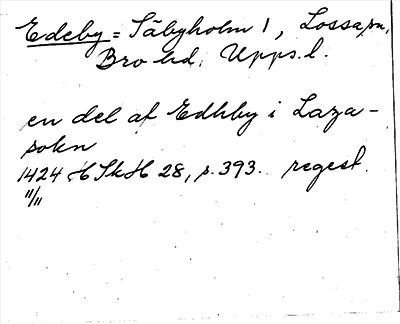 Edeby = Säbyholm 1, Lossa sn,
Bro hd, Upps. l.
en del af Edhby i Laza-
sokn
1424 HSkH 28, s. 393. regest.
11/11